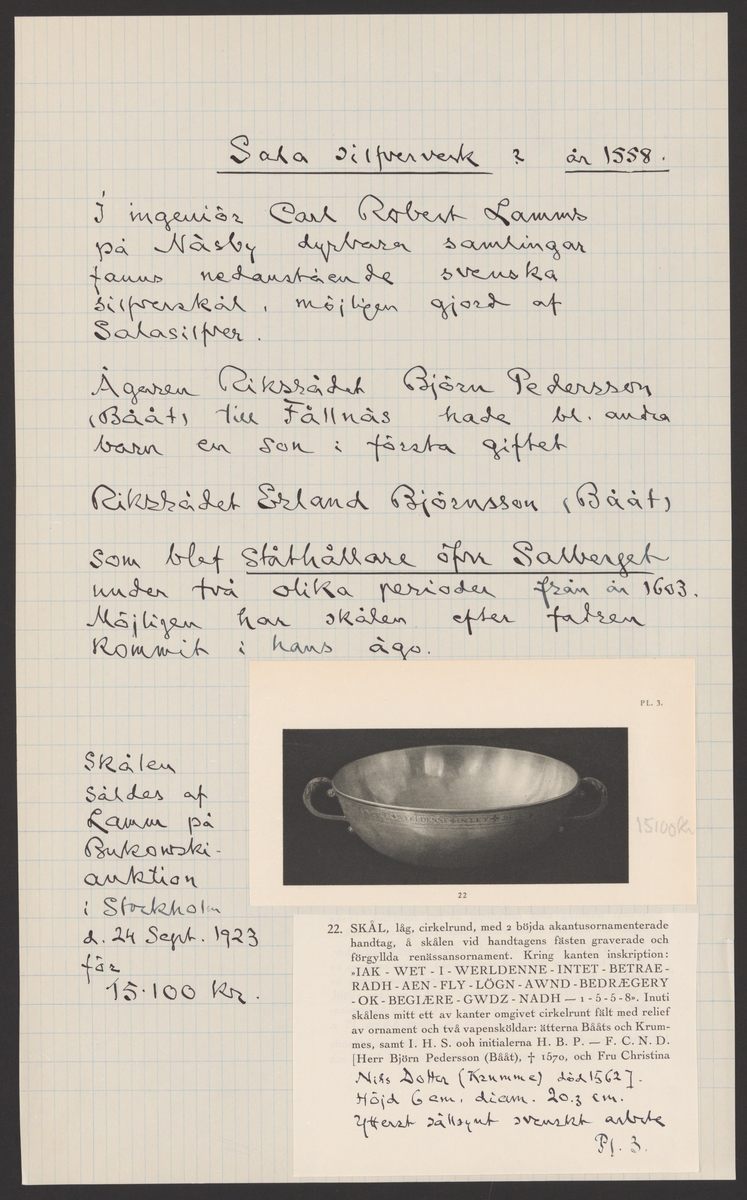 Sala silfververk ? år 1558.
I ingeniör Carl Robert Lamms
på Näsby dyrbara samlingar
fanns nedanstående svenska
silfverskål, möjligen gjord af
Salasilfver.
Ägaren Riksrådet Björn Pedersson
(Bååt) till Fållnäs hade bl. andra
barn en son i första giftet
Riksrådet Erland Björnsson (Bååt)
som blef Ståthållare öfver Salberget
under två olika perioder från år 1603.
Möjligen har skålen efter fadren
kommit i hans ägo.
PL. 3.
15100 Kr
22
Skålen
såldes af
Lamm på
Bukowski-
auktion
i Stockholm
d. 24 Sept. 1923
för
15.100 Kr.
22. SKÅL, låg, cirkelrund, med 2 böjda akantusornamenterade
handtag, å skålen vid handtagens fästen graverade och
förgyllda renässansornament. Kring kanten inskription:
»IAK - WET - I - WERLDENNE - INTET - BETRAE -
RADH - AEN - FLY - LÖGN - AWND - BEDRÆGERY
- OK - BEGIÆRE - GWDZ - NADH — 1 - 5 - 5 - 8». Inuti
skålens mitt ett av kanter omgivet cirkelrunt fält med relief
av ornament och två vapensköldar: ätterna Bååts och Krum-
mes, samt I. H. S. och initialerna H. B. P. — F. C. N. D.
[Herr Björn Pedersson (Bååt), † 1570, och Fru Christina
Nils Dotter (Krumme) död 1562].
Höjd 6 cm, diam. 20.3 cm.
Ytterst sällsynt svenskt arbete
Pl. 3.